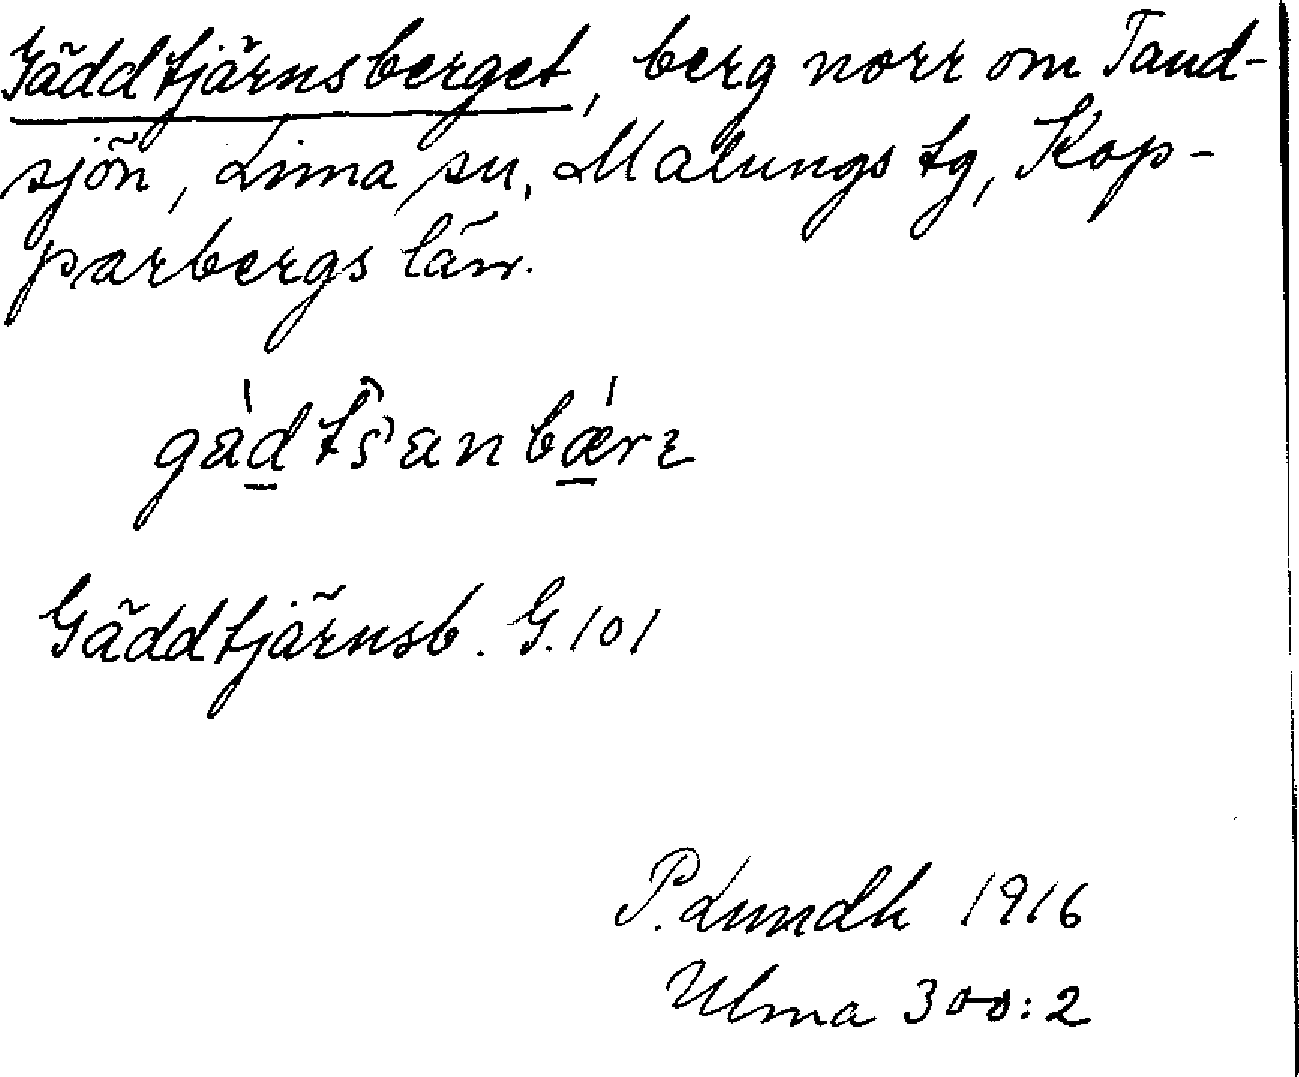 Gäddtjärnsberget, berg norr om Tand-
sjön, Lima sn, Malungs tg, Kop-
parbergs län.
Gäddtjärnsb. G. 101
P. Lundh 1916
Ulma 300:2